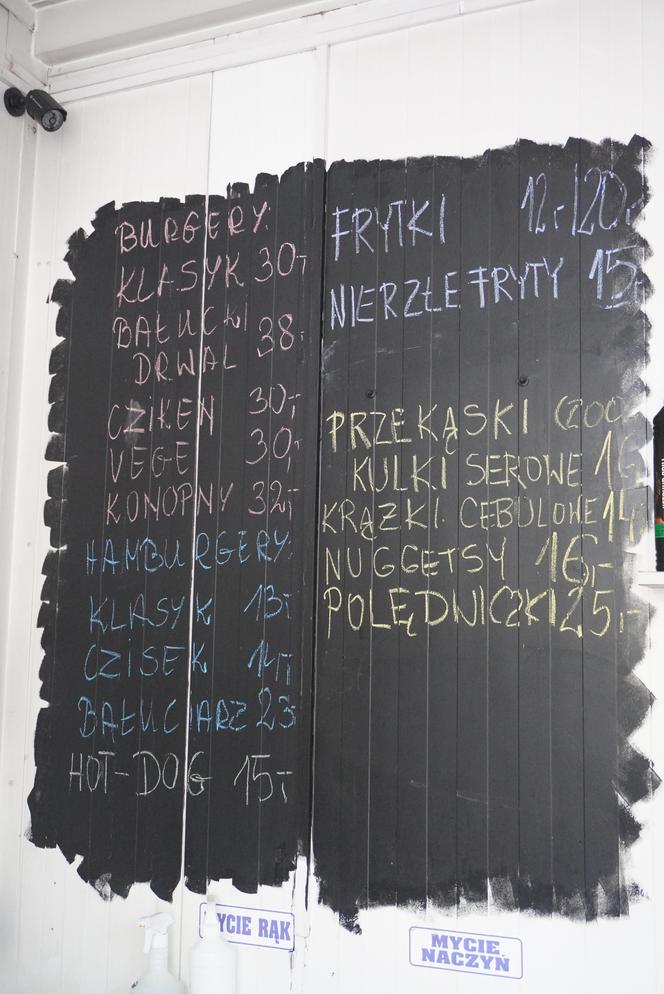 BURGERY
KLASYK 30,-
BAŁUCKI
DRWAL 38,-
CZIKEN 30,-
VEGE 30,-
KONOPNY 32,-
HAMBURGERY
KLASYK 13,-
CZISEK 14,-
BAŁUCIARZ 23,-
HOT-DOG 15,-
FRYTKI 12,-/20,-
NIERZŁE FRYTY 15,-
PRZEKĄSKI (200
KULKI SEROWE 16
KRĄŻKI CEBULOWE 14,-
NUGGETSY 16,-
POLĘDNICZKI 25,-
MYCIE RĄK
MYCIE
NACZYŃ